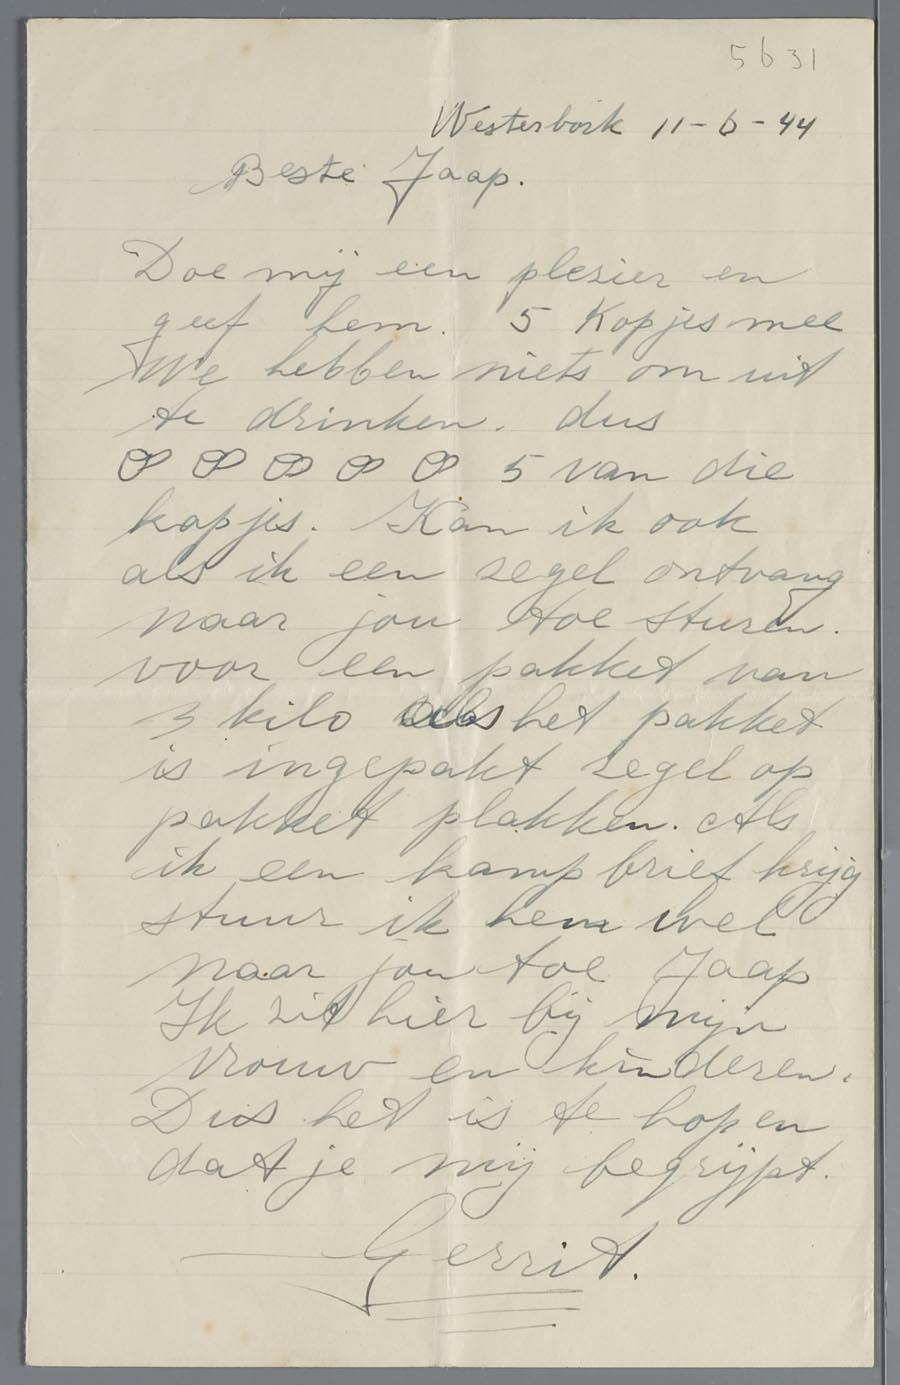 5631
Westerbork 11-6-44
Beste Jaap.
Doe mij een plezier en
geef hem. 5 Kopjes mee
We hebben niets om uit
te drinken. dus
5 van die
kopjes. Kan ik ook
als ik een zegel ontvang
naar jou toe sturen.
voor een pakket van
3 kilo als het pakket
is ingepakt zegel op
pakket plakken. Als
ik een kamp brief krijg
stuur ik hem wel
naar jou toe Jaap
Ik zit hier bij mijn
vrouw en kinderen.
Dus het is te hopen
dat je mij begrijpt.
Gerrit.